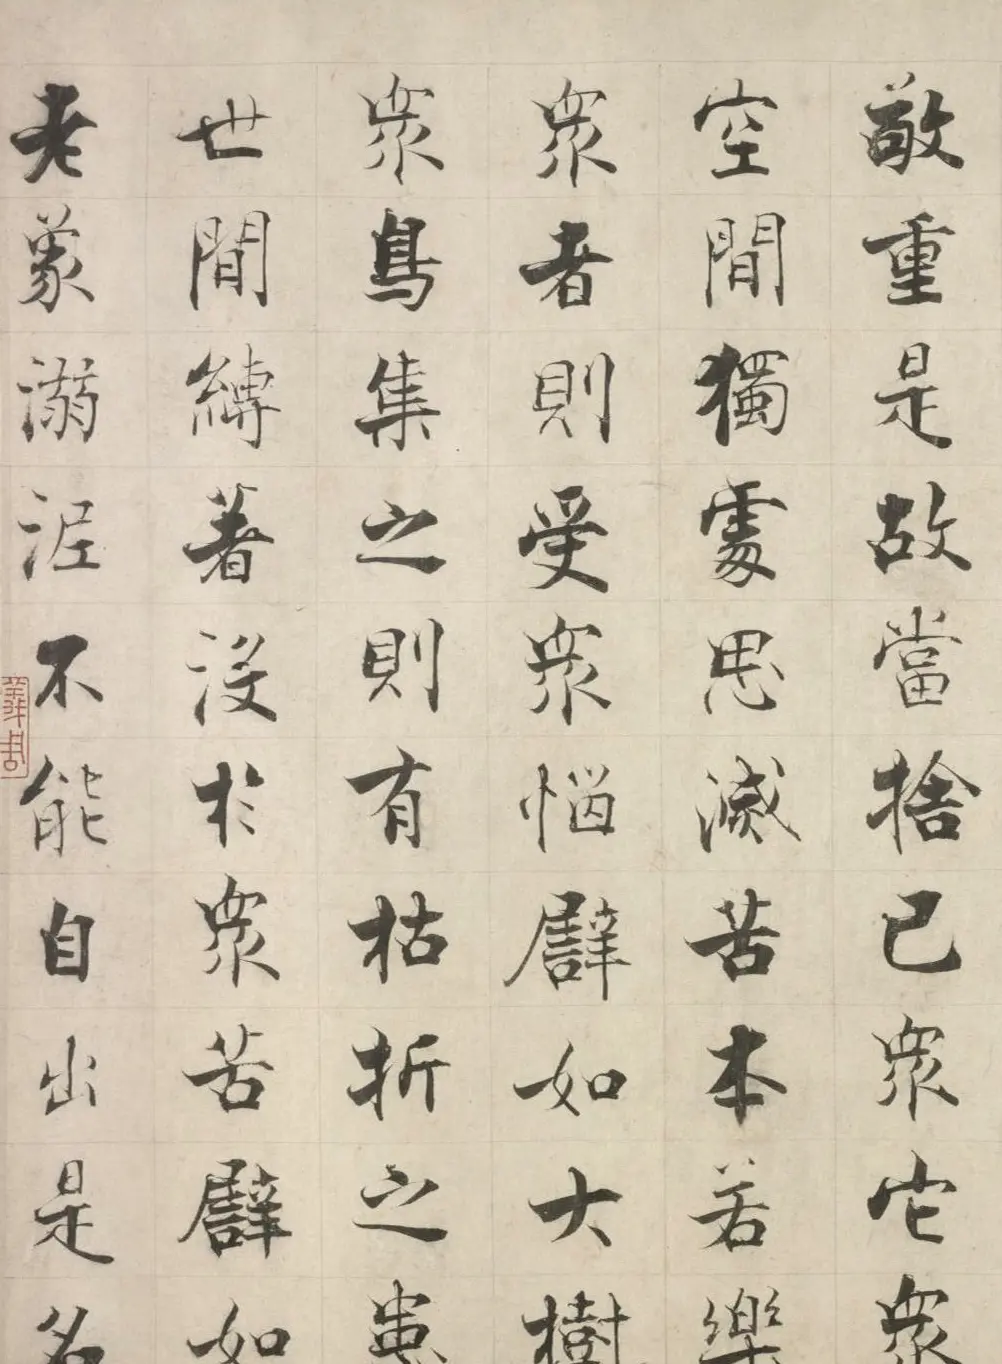 敬重是故當捨己衆它衆
空閒獨處思滅苦本若樂
衆者則受衆惱譬如大樹
衆鳥集之則有枯折之患
世間縛著没於衆苦譬如
老象溺泥不能自出是名